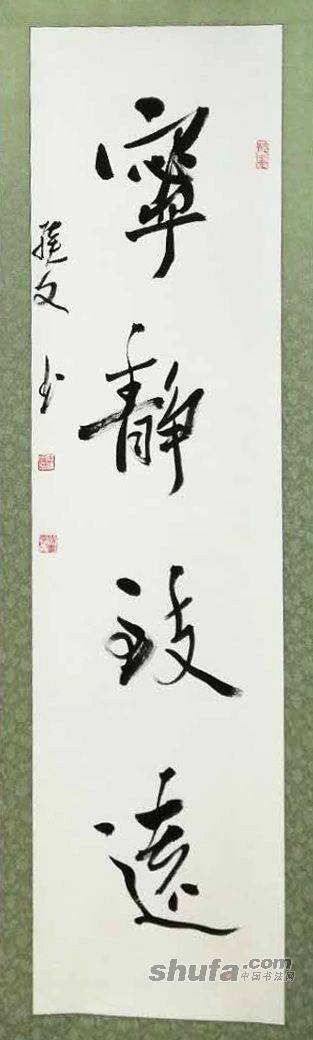 寧靜致遠
文书
shufa.com
中国书法网